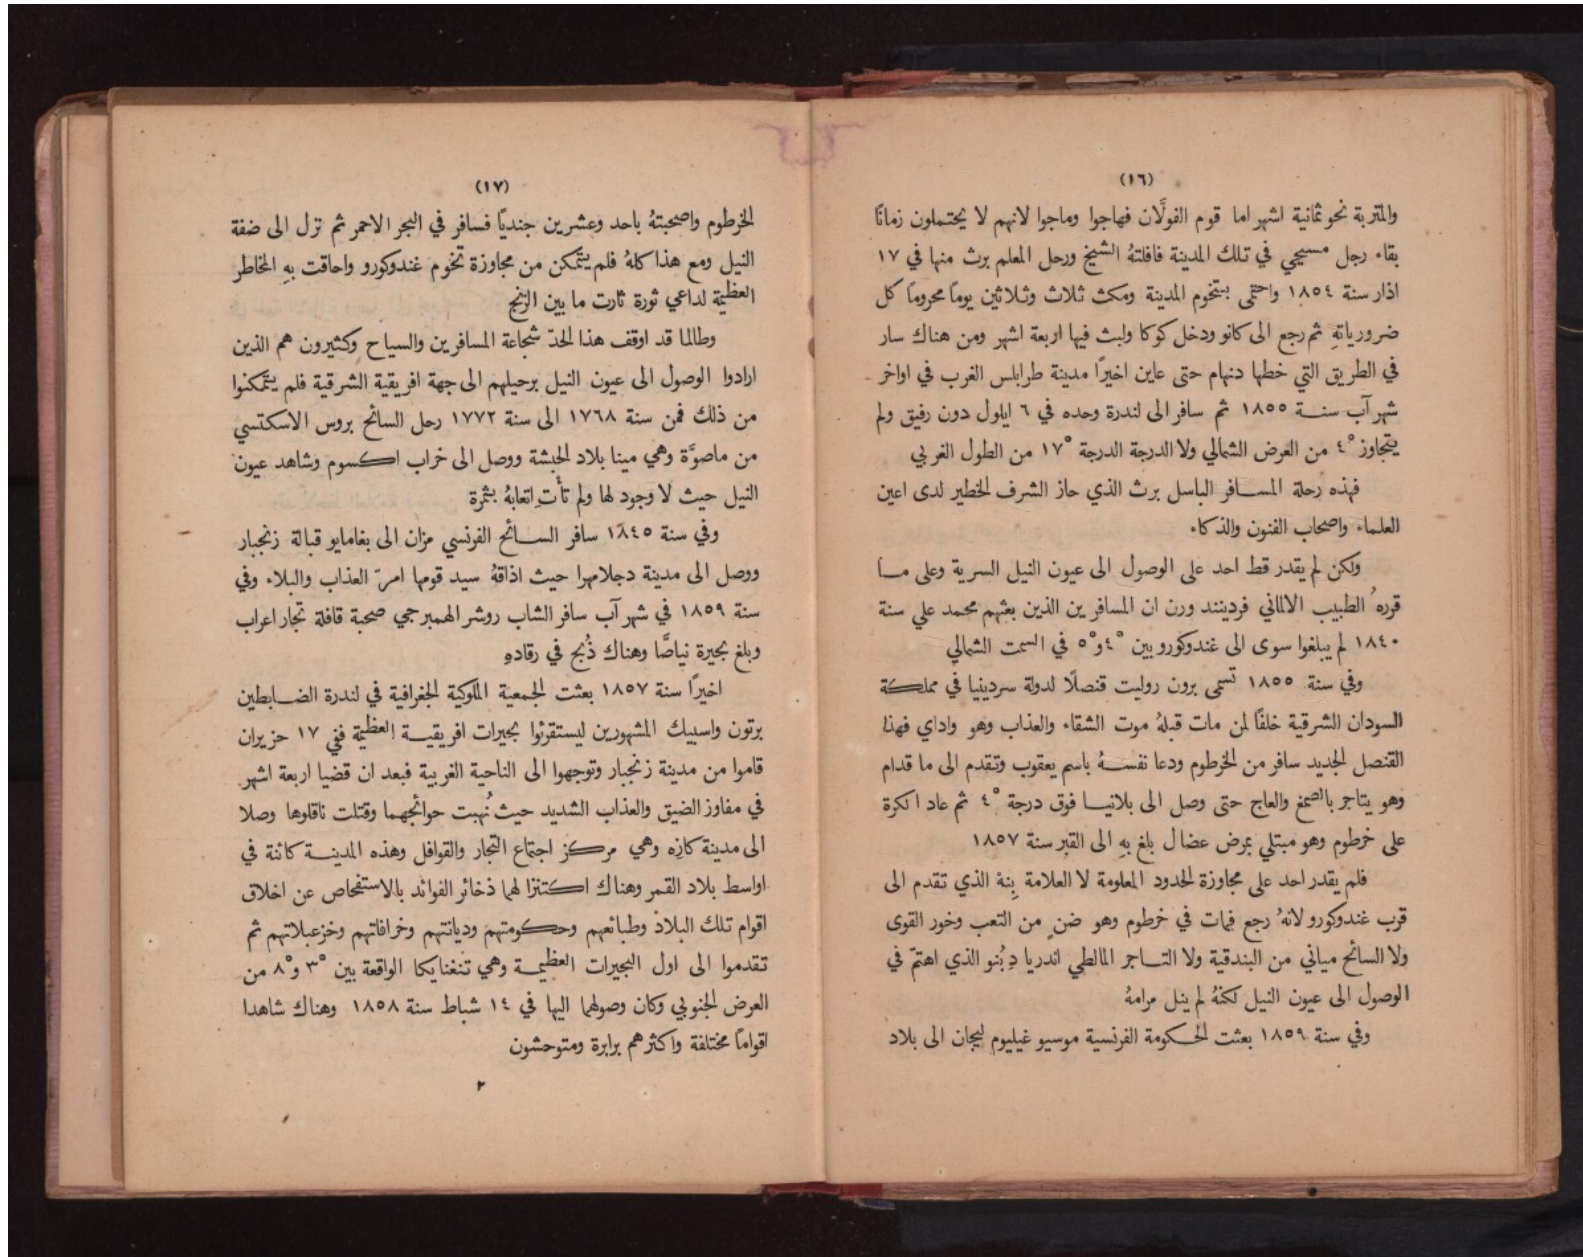 (١٦)
والمتربة نحو ثمانية اشهر اما قوم الفولَّان فهاجوا وماجوا لانهم لا يحتملون زمانًا
بقاء رجل مسيحي في تلك المدينة فافلتهُ الشيخ ورحل المعلم برث منها في ١٧
اذار سنة ١٨٥٤ واحتمى بتخوم المدينة ومكث ثلاث وثلاثين يومًا محرومًا كل
ضرورياتهِ ثم رجع الى كانو ودخل كوكا ولبث فيها اربعة اشهر ومن هناك سار
في الطريق التي خطها دنهام حتى عاين اخيرًا مدينة طرابلس الغرب في اواخر
شهر آب سنة ١٨٥٥ ثم سافر الى لندرة وحده في ٦ ايلول دون رفيق ولم
يتجاوز ٤° من العرض الشمالي ولا الدرجة الدرجة ١٧° من الطول الغربي
فهذه رحلة المسافر الباسل برث الذي حاز الشرف الخطير لدى اعين
العلماء واصحاب الفنون والذكاء
ولكن لم يقدر قط احد على الوصول الى عيون النيل السرية وعلى ما
قررهُ الطبيب الالماني فردينند ورن ان المسافرين الذين بعثهم محمد علي سنة
١٨٤٠ لم يبلغوا سوى الى غندوكورو بين ٤° و٥° في السمت الشمالي
وفي سنة ١٨٥٥ تسمى برون روليت قنصلًا لدولة سردينيا في مملكة
السودان الشرقية خلفًا لمن مات قبلهُ موت الشقاء والعذاب وهو واداي فهذا
القنصل الجديد سافر من الخرطوم ودعا نفسهُ باسم يعقوب وتقدم الى ما قدام
وهو يتاجر بالصمغ والعاج حتى وصل الى بلانيا فوق درجة ٤° ثم عاد الكرة
على خرطوم وهو مبتلي بمرض عضال بلغ بهِ الى القبر سنة ١٨٥٧
فلم يقدر احد على مجاوزة الحدود المعلومة لا العلامة بِنهْ الذي تقدم الى
قرب غندوكورو لانهُ رجع فمات في خرطوم وهو ضنٍ من التعب وخور القوى
ولا السائح مياني من البندقية ولا التاجر المالطي اندريا دِبُنو الذي اهتمّ في
الوصول الى عيون النيل لكنهُ لم ينل مرامهُ
وفي سنة ١٨٥٩ بعثت الحكومة الفرنسية موسيو غيليوم ليجان الى بلاد
(١٧)
الخرطوم واصحبتهُ باحد وعشرين جنديًا فسافر في البحر الاحمر ثم نزل الى ضفة
النيل ومع هذا كلهُ فلم يتمكن من مجاوزة تخوم غندوكورو واحاقت بهِ المخاطر
العظيمة لداعي ثورة ثارت ما بين الزنج
وطالما قد اوقف هذا الحدّ شجاعة المسافرين والسياح وكثيرون هم الذين
ارادوا الوصول الى عيون النيل برحيلهم الى جهة افريقية الشرقية فلم يتمكنوا
من ذلك فمن سنة ١٧٦٨ الى سنة ١٧٧٢ رحل السائح بروس الاسكتسي
من ماصوَّة وهي مينا بلاد الحبشة ووصل الى خراب اكسوم وشاهد عيون
النيل حيث لا وجود لها ولم تأْتِ اتعابهُ بثمرة
وفي سنة ١٨٤٥ سافر السائح الفرنسي مزان الى بغامايو قبالة زنجبار
ووصل الى مدينة دجلامهرا حيث اذاقهُ سيد قومها امرّ العذاب والبلاء وفي
سنة ١٨٥٩ في شهر آب سافر الشاب روشر الهمبرجي صحبة قافلة تجار اعراب
وبلغ بحيرة نياصَّا وهناك ذُبح في رقادهِ
اخيرًا سنة ١٨٥٧ بعثت الجمعية الملوكية الجغرافية في لندرة الضابطين
برتون واسبيك المشهورين ليستقرئوا بحيرات افريقية العظيمة ففي ١٧ حزيران
قاموا من مدينة زنجبار وتوجهوا الى الناحية الغربية فبعد ان قضيا اربعة اشهر
في مفاوز الضيق والعذاب الشديد حيث نُهبت حوائجهما وقتلت ناقلوها وصلا
الى مدينة كازه وهي مركز اجتماع التجار والقوافل وهذه المدينة كائنة في
اواسط بلاد القمر وهناك اكتنزا لهما ذخائر الفوائد بالاستفحاص عن اخلاق
اقوام تلك البلاد وطبائعهم وحكومتهم وديانتهم وخرافاتهم وخزعبلاتهم ثم
تقدموا الى اول البحيرات العظيمة وهي تنغنايكا الواقعة بين ٣° و٨° من
العرض الجنوبي وكان وصولهما اليها في ١٤ شباط سنة ١٨٥٨ وهناك شاهدا
اقوامًا مختلفة واكثرهم برابرة ومتوحشون
٢